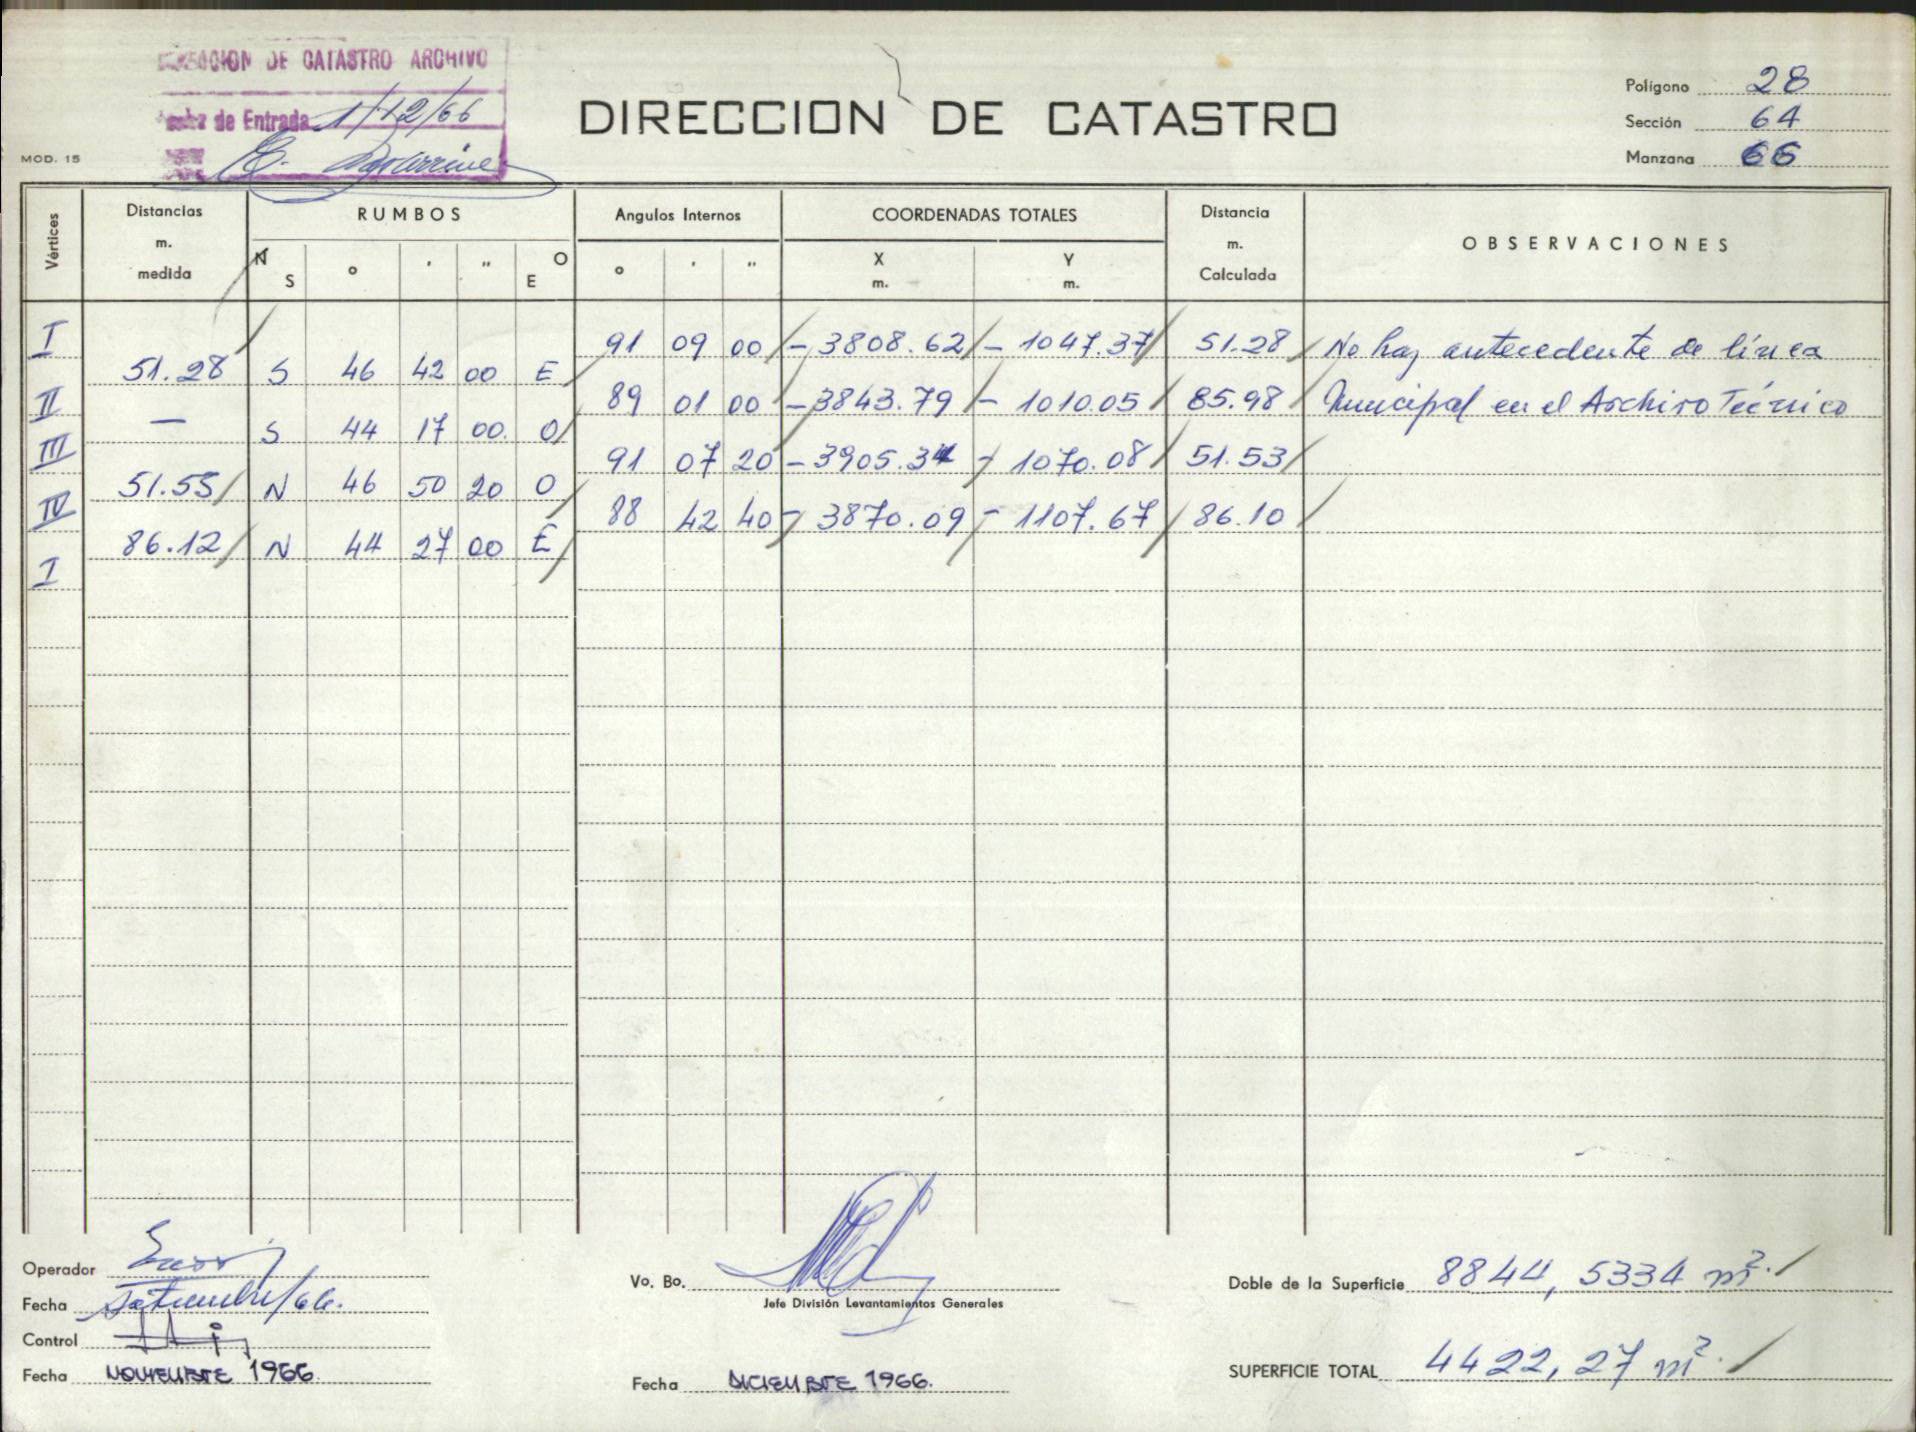 DIRECCION DE CATASTRO ARCHIVO
de Entrada 1/12/66
MOD. 15
DIRECCION DE CATASTRO
Polígono 28
Sección 64
Manzana 66
Vértices
Distancias m. medida
RUMBOS
N S ° ' " O E
Angulos Internos
° ' "
COORDENADAS TOTALES
X m. Y m.
Distancia m. Calculada
OBSERVACIONES
I 91 09 00 - 3808.62 - 1047.37 51.28 No hay antecedente de línea
51.28 S 46 42 00 E
II 89 01 00 - 3843.79 - 1010.05 85.98 Municipal en el Archivo Técnico
— S 44 17 00 O
III 91 07 20 - 3905.34 - 1070.08 51.53
51.55 N 46 50 20 O
IV 88 42 40 - 3870.09 - 1107.67 86.10
86.12 N 44 27 00 E
I
Operador
Fecha /66.
Control
Fecha NOVIEMBRE 1966
Vo. Bo.
Jefe División Levantamientos Generales
Fecha DICIEMBRE 1966.
Doble de la Superficie 8844,5334 m².
SUPERFICIE TOTAL 4422,27 m².